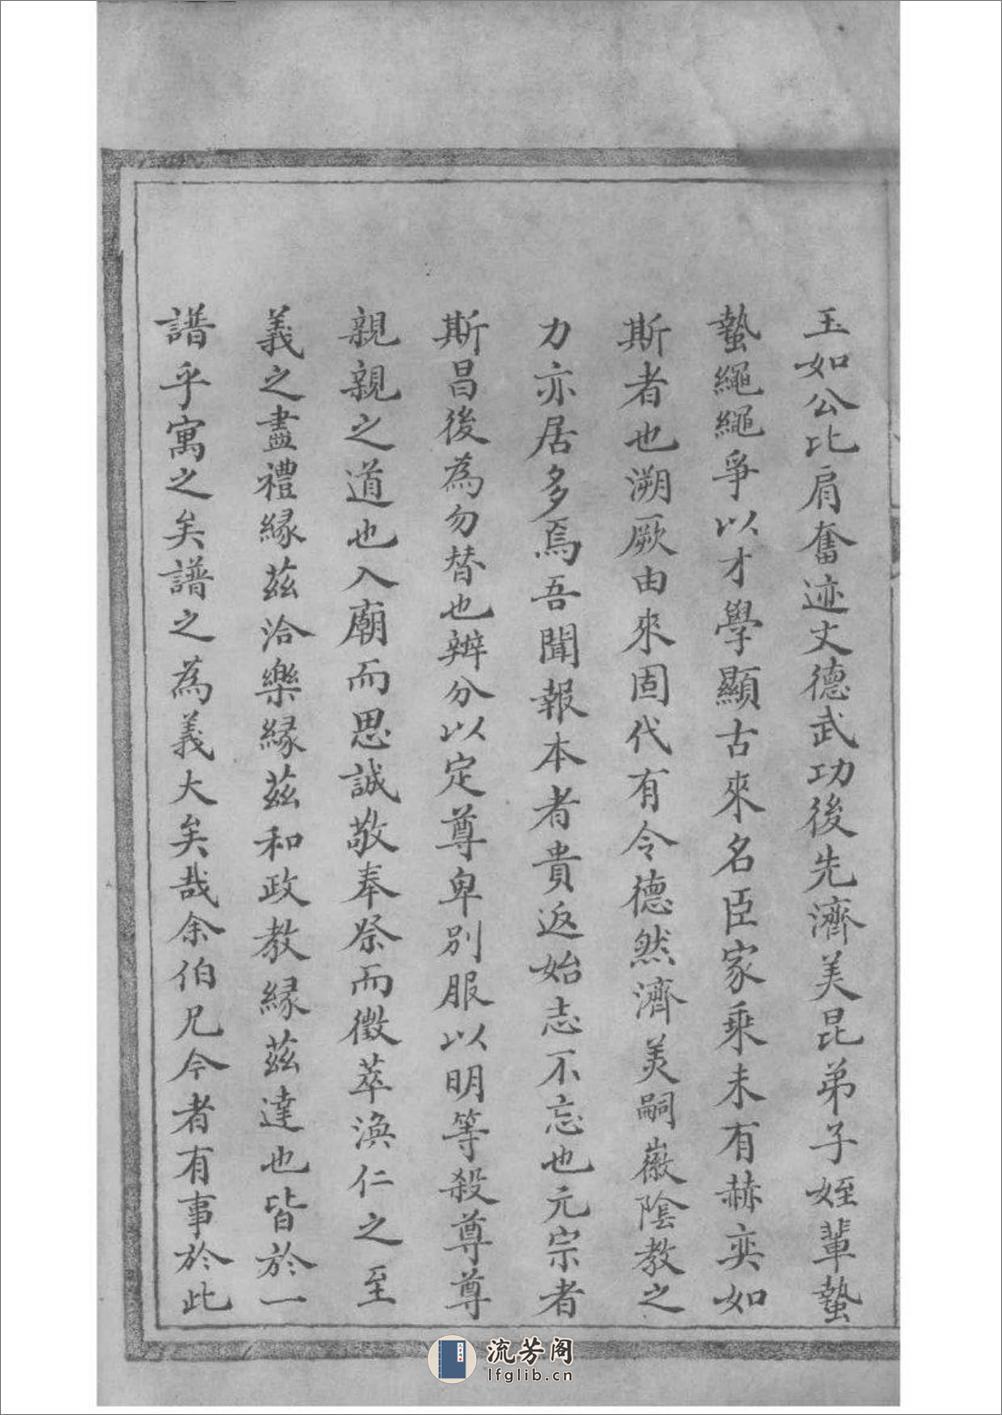 玉如公比肩奮迹文德武功後先濟美昆弟子姪輩蟄
蟄繩繩爭以才學顯古來名臣家乘未有赫奕如
斯者也溯厥由來固代有令德然濟美嗣徽陰教之
力亦居多焉吾聞報本者貴返始志不忘也元宗者
斯昌後為勿替也辨分以定尊卑別服以明等殺尊尊
親親之道也入廟而思誠敬奉祭而徵萃渙仁之至
義之盡禮緣茲洽樂緣茲和政教緣茲達也皆於一
譜乎寓之矣譜之為義大矣哉余伯兄今者有事於此
流芳阁
lfglib.cn